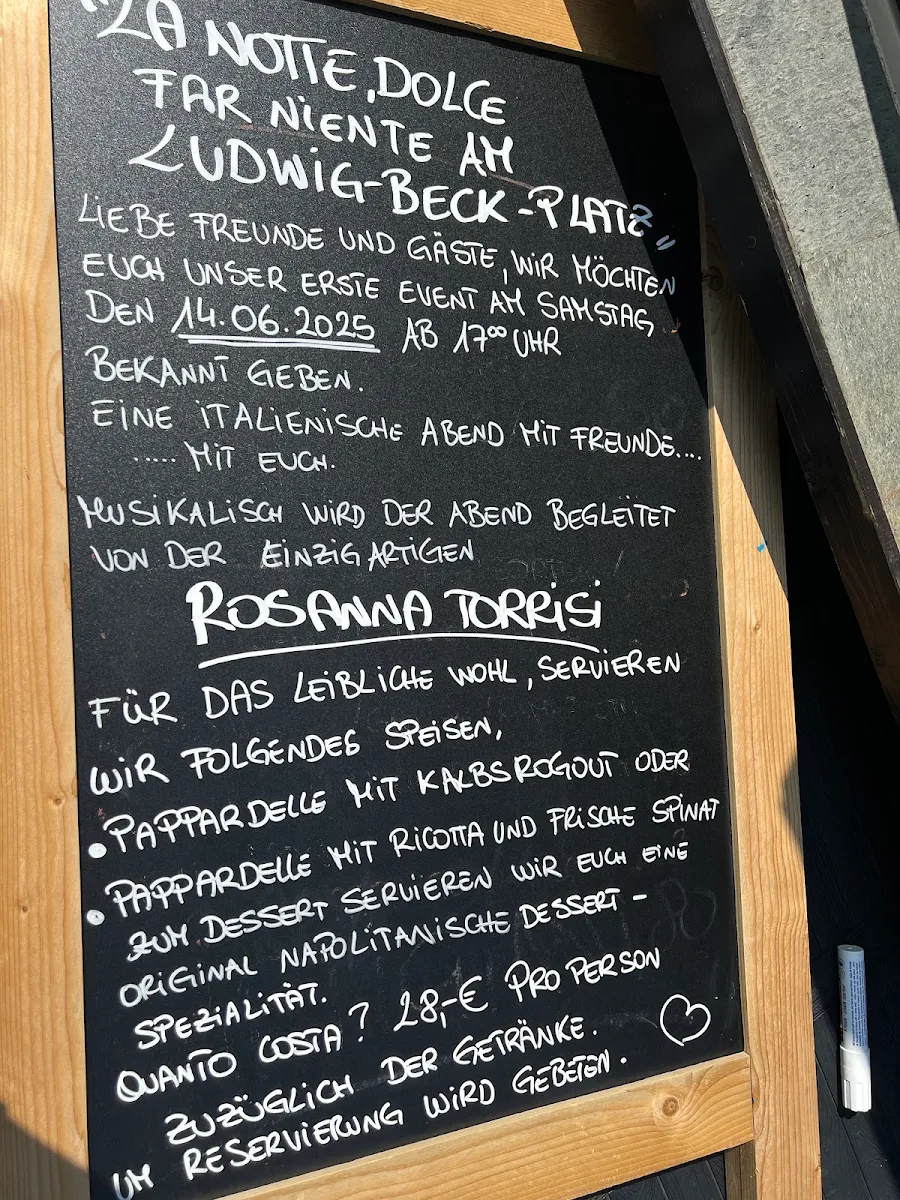 "LA NOTTE, DOLCE
FAR NIENTE AM
LUDWIG-BECK-PLATZ"
LIEBE FREUNDE UND GÄSTE, WIR MÖCHTEN
EUCH UNSER ERSTE EVENT AM SAMSTAG
DEN 14.06.2025 AB 17⁰⁰ UHR
BEKANNT GEBEN.
EINE ITALIENISCHE ABEND MIT FREUNDE....
..... MIT EUCH.
MUSIKALISCH WIRD DER ABEND BEGLEITET
VON DER EINZIGARTIGEN
ROSANNA TORRISI
FÜR DAS LEIBLICHE WOHL, SERVIEREN
WIR FOLGENDES SPEISEN,
• PAPPARDELLE MIT KALBSROGOUT ODER
• PAPPARDELLE MIT RICOTTA UND FRISCHE SPINAT
ZUM DESSERT SERVIEREN WIR EUCH EINE
ORIGINAL NAPOLITANISCHE DESSERT-
SPEZIALITÄT.
QUANTO COSTA? 28,-€ PRO PERSON
ZUZÜGLICH DER GETRÄNKE.
UM RESERVIERUNG WIRD GEBETEN.